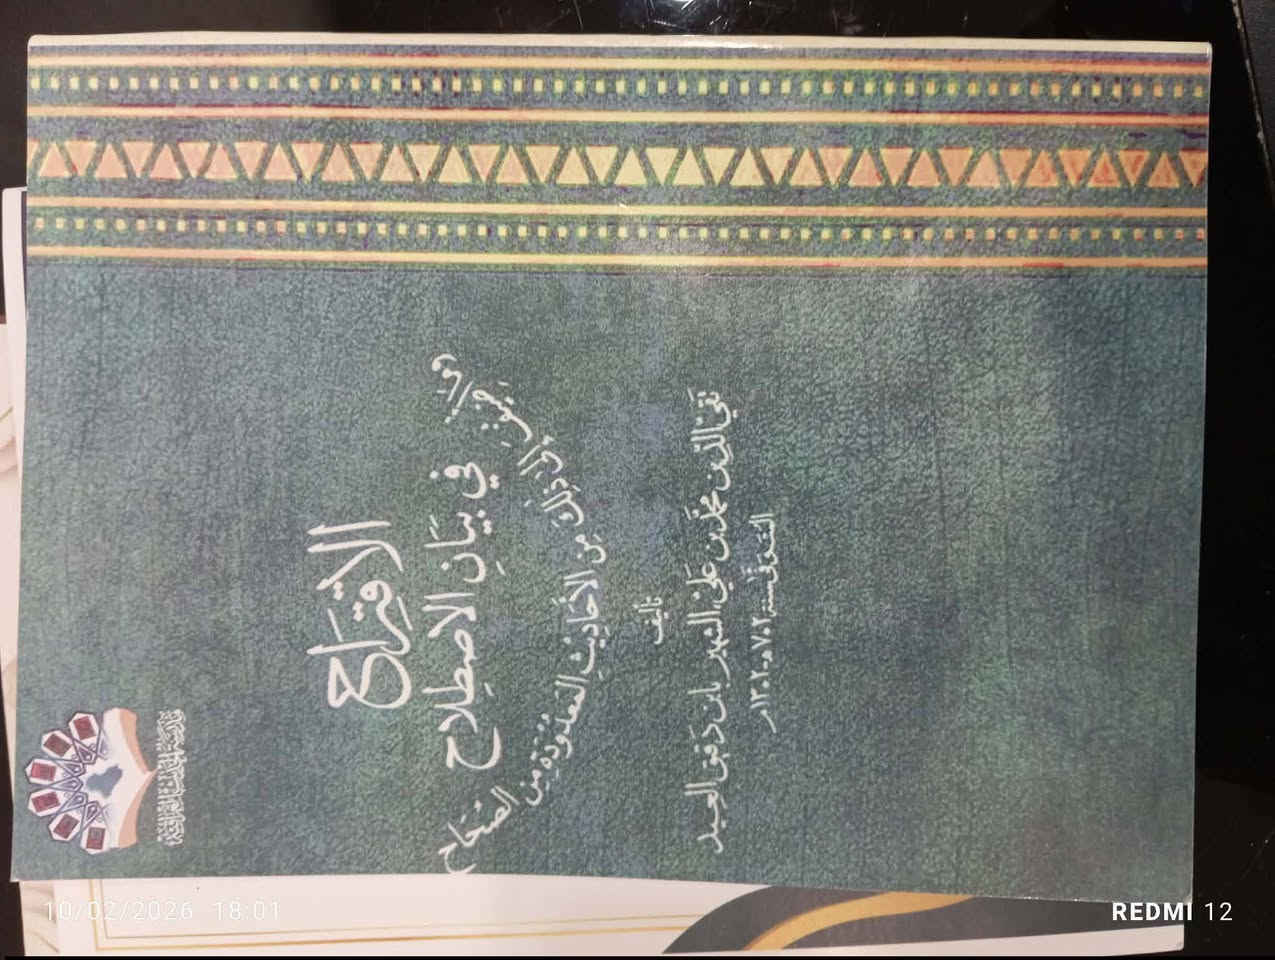 الاقتراح
في بيان الاصطلاح
وما أضيف إلى ذلك من الأحاديث المعدودة من الصحاح
تأليف
تقي الدين محمد بن علي الشهير بابن دقيق العيد
المتوفى سنة ٧٠٢هـ-١٣٠٢م
10/02/2026 18:01
REDMI 12